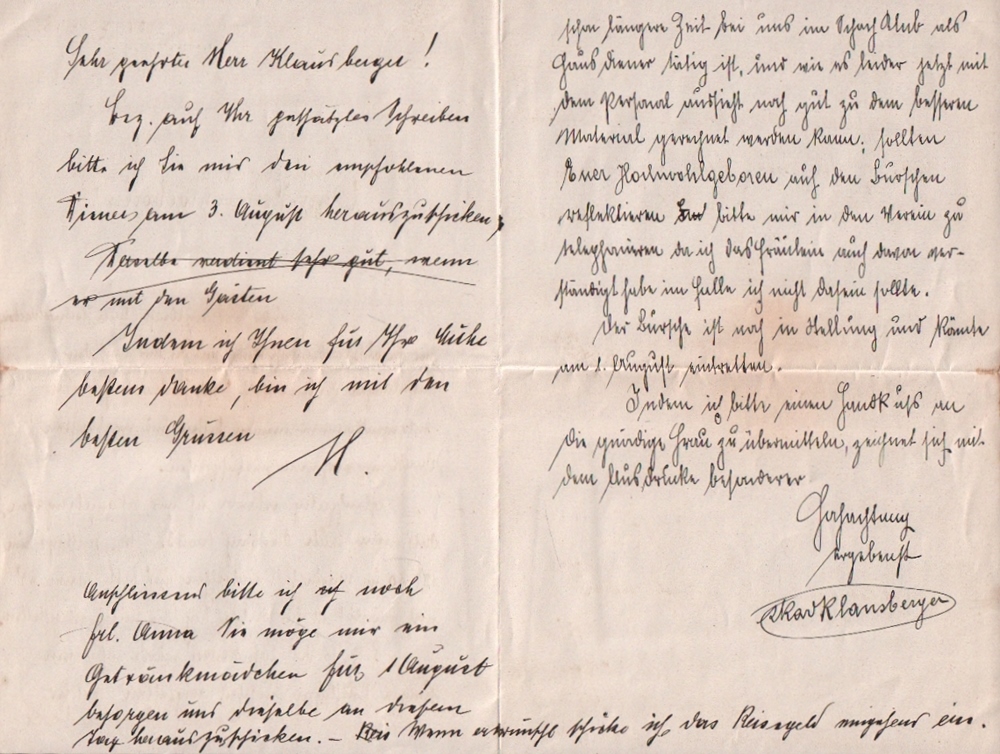 Sehr geehrter Herr Klausberger!
Bez. auf Ihr geschätztes Schreiben
bitte ich Sie mir den empfohlenen
Diener, am 3. August herauszuschicken,
Derselbe verdient sehr gut, wenn
er mit den Gästen
Indem ich Ihnen für Ihre Mühe
bestens danke, bin ich mit den
besten Grüssen
H.
Anschliessend bitte ich noch
Frl. Anna Sie möge mir ein
Getränkmädchen für 1 August
besorgen und dieselbe an diesem
Tag herauszuschicken. – Wenn erwünscht schicke ich das Reisegeld umgehend ein.
schon längere Zeit bei uns im Schach Klub als
Hausdiener tätig ist, und wie es leider jetzt mit
dem Personal aussieht noch gut zu dem besseren
Material gerechnet werden kann; sollten
Euer Hochwohlgeboren auf den Burschen
reflektieren bitte mir in den Verein zu
telephonieren da ich das Fräulein auch davon ver-
ständigt habe im Falle ich nicht dasein sollte.
Der Bursche ist noch in Stellung und könnte
am 1. August eintretten.
Indem ich bitte einen Handkuss an
die gnädige Frau zu übermitteln, zeichnet sich mit
dem Ausdrucke besonderer
Hochachtung
ergebenst
Klausberger